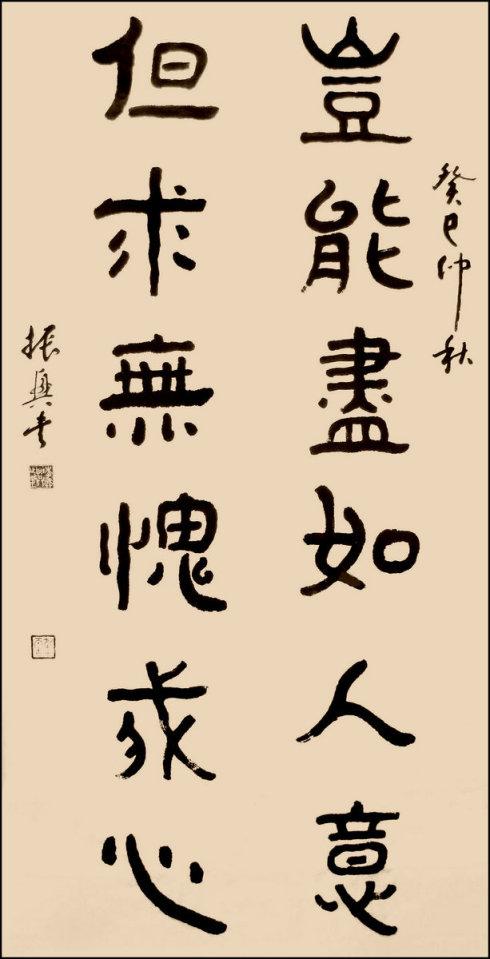 癸巳仲秋
豈能盡如人意
但求無愧我心
振興書